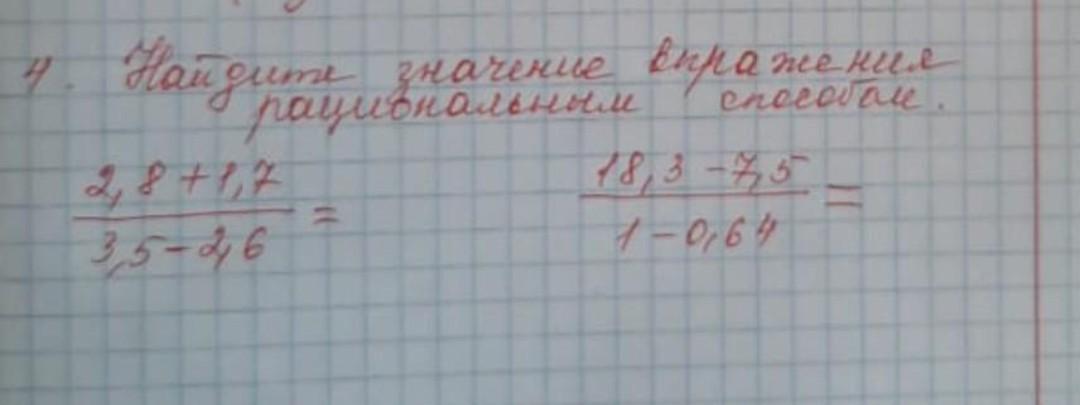 4. Найдите значение выражения
рациональным способом.
2,8 + 1,7
3,5 - 2,6
=
18,3 - 7,5
1 - 0,64
=